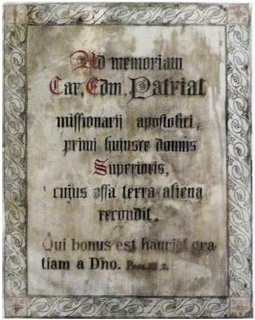 Ad memoriam
Car, Edm, Patriat
missionarii apostolici,
primi hujusce domus
Superioris,
cujus ossa terra aliena
recondit.
Qui bonus est hauriet gra
tiam a Dno. Prov. 2.